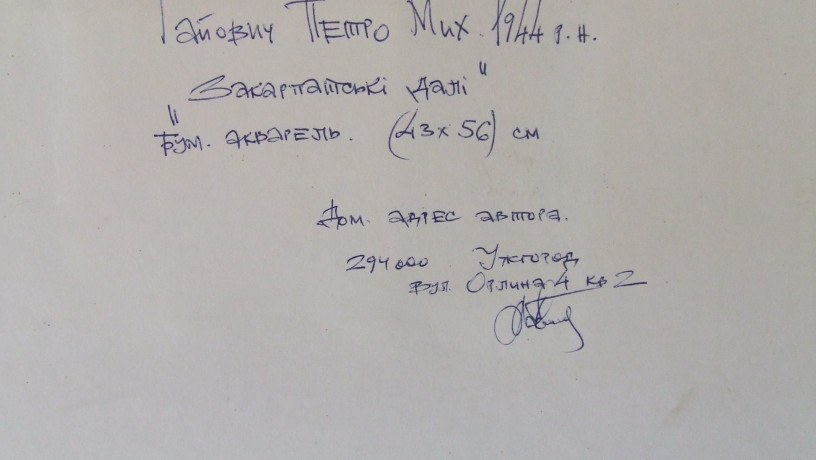 Гайович Петро Мих. 1944 р.н.
"Закарпатські далі"
Бум. акварель. (43х56) см
Дом. адрес автора.
294000 Ужгород
вул. Орлина 4 кв 2